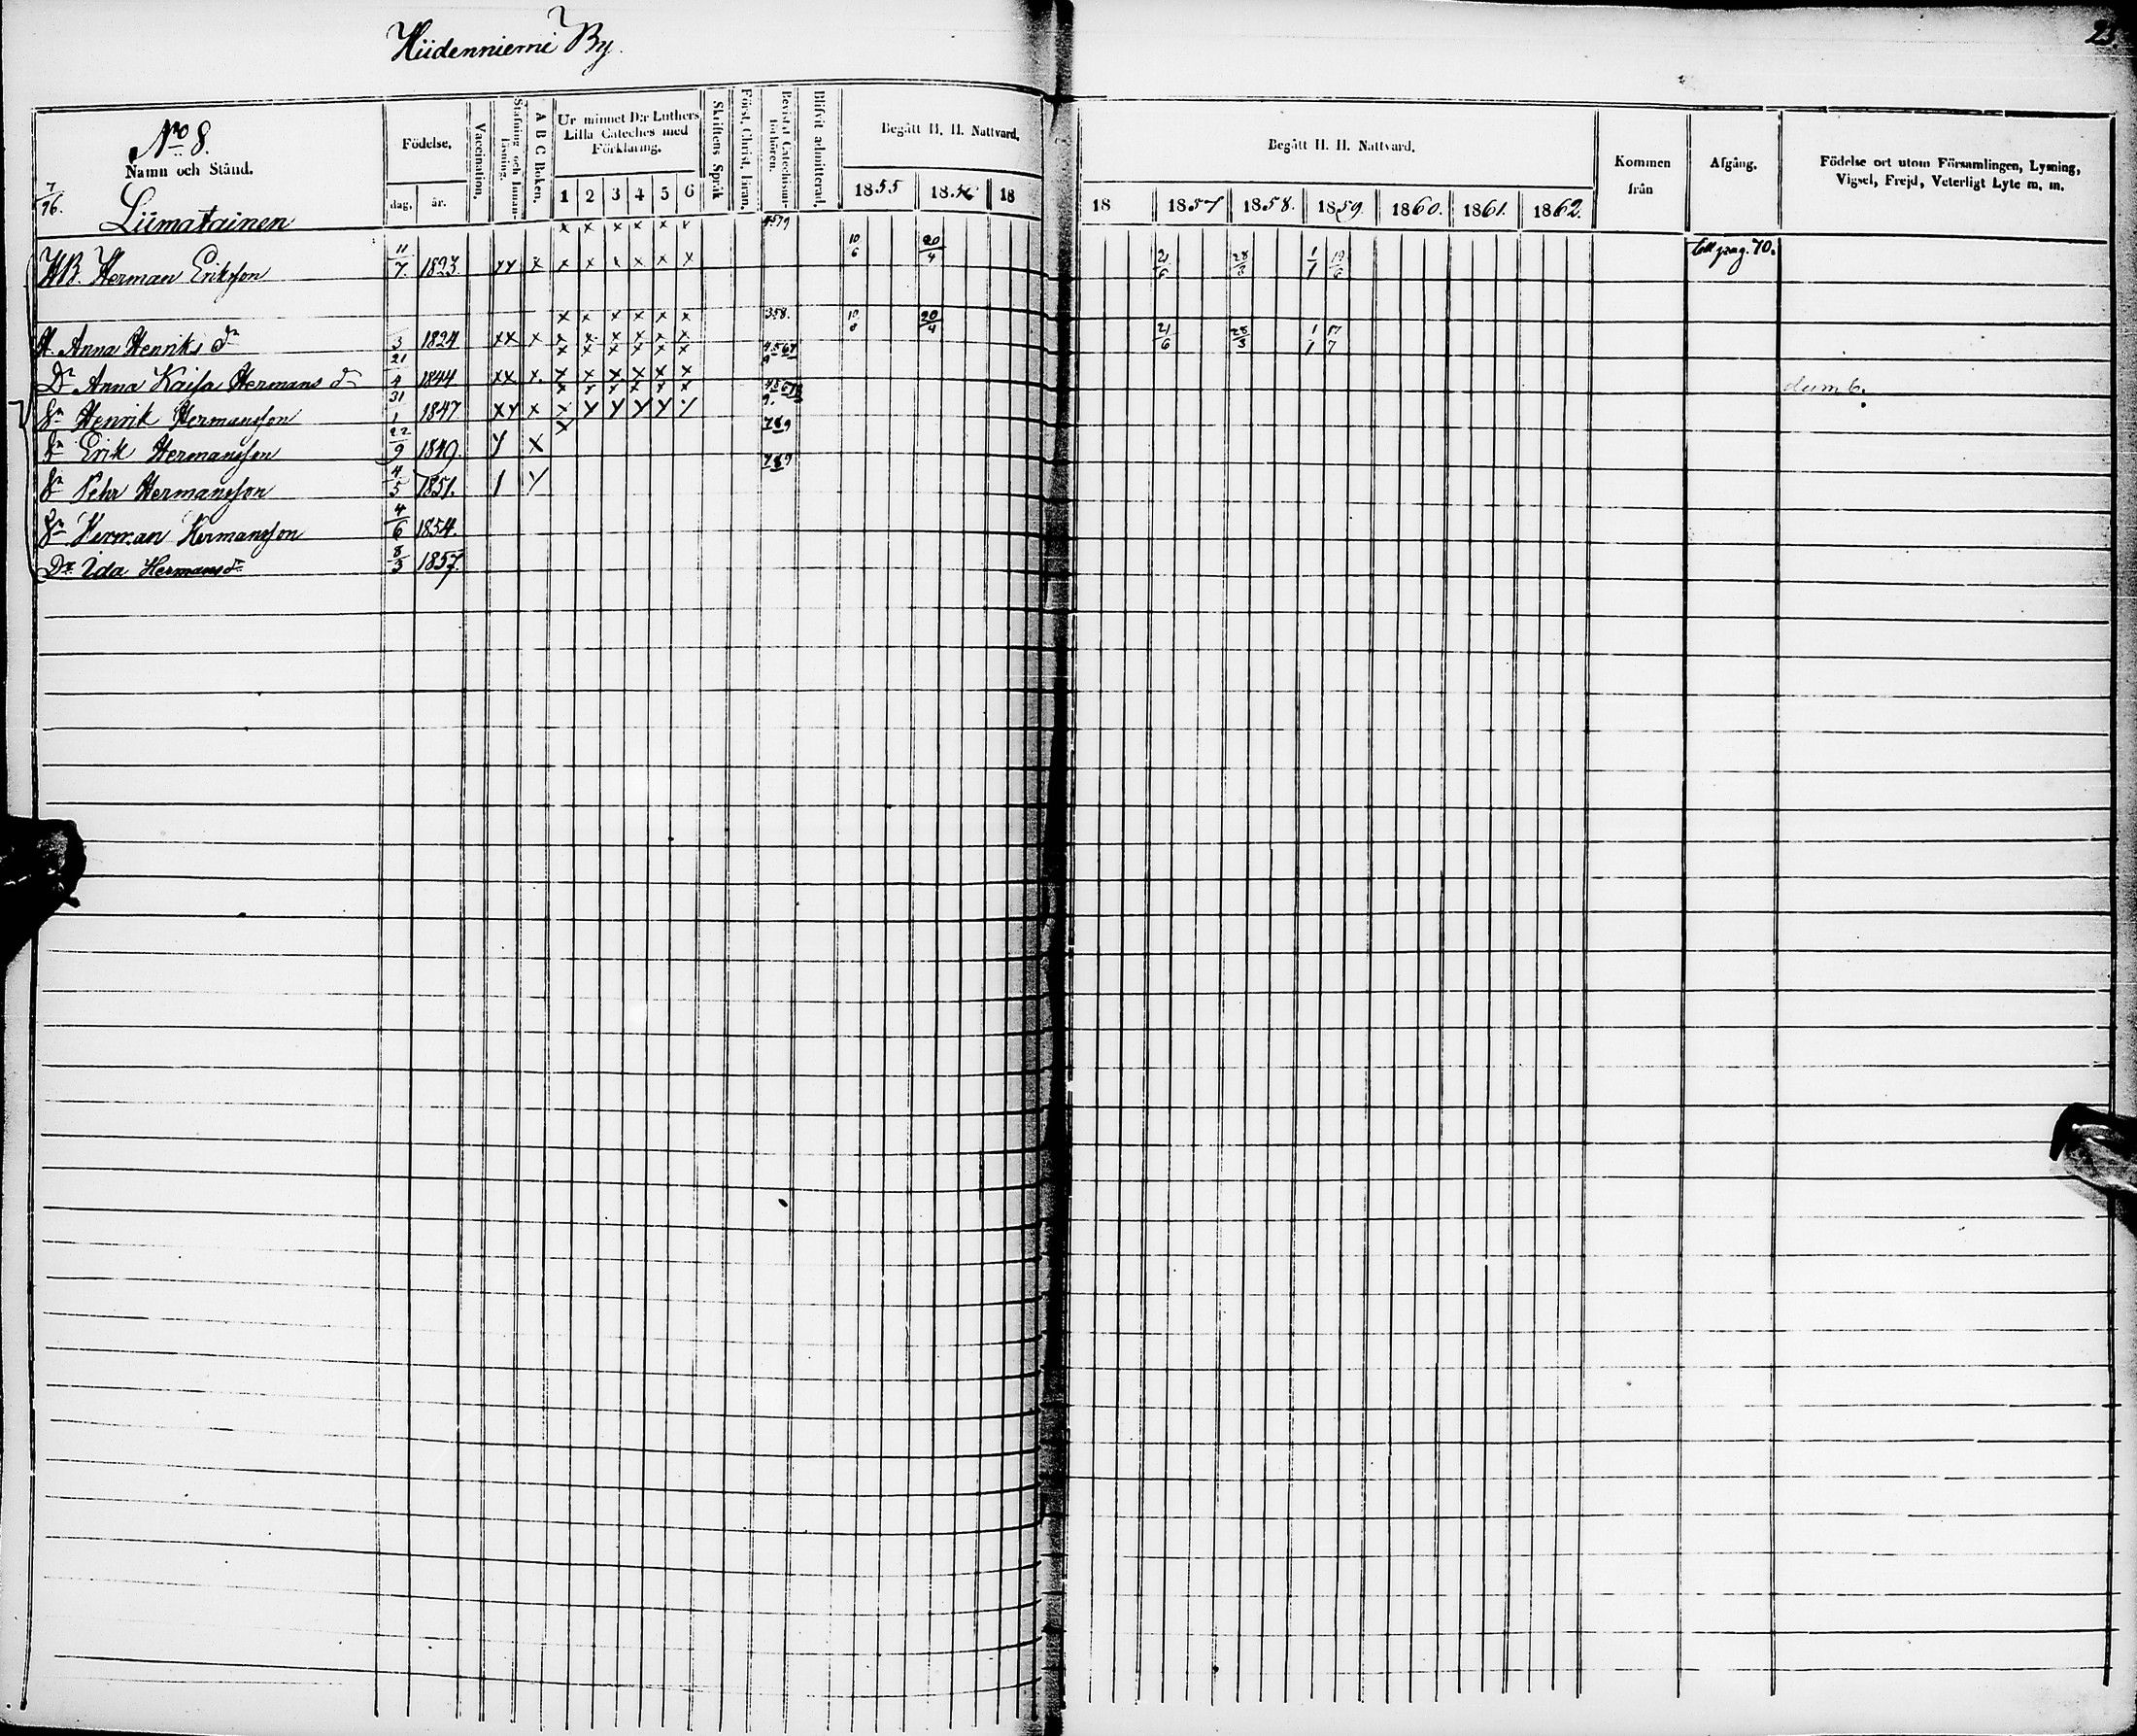 Hiidenniemi By.
23.
No 8.
Namn och Stånd.
Födelse.
dag. år.
Vaccination.
Stafning och Innanläsning.
A B C Boken.
Ur minnet D:r Luthers
Lilla Cateches med
Förklaring.
1 2 3 4 5 6
Skriftens Språk
Först. Christ. Läran.
Bevistat Catechismi-
förhören.
Blifvit admitterad.
Begått H. H. Nattvard.
1855 1856 18
Begått H. H. Nattvard.
18 1857 1858. 1859. 1860. 1861. 1862.
Kommen
från
Afgång.
Födelse ort utom Församlingen, Lysning,
Vigsel, Frejd, Veterligt Lyte m. m.
7/76.
Liimatainen
x x x x x x
HB. Herman Eriksson 11/7 1823 xx x x x x x x x 10/6 20/4 21/6 28/3 1/1 till pag. 70.
x x x x x x 358.
H. Anna Henriks dr 3 1824 xx x x x x x x x 20/4 21/6 28/3 1/1 17/7
x x x x x x
Dr Anna Kaisa Hermans dr 21/4 1844 xx x. x x x x x x dumb.
x x x x x x
Sn Henrik Hermansson 31/1 1847 xx x x x x x x x
x 789
Sn Erik Hermansson 22/9 1849 x x
789
Sn Pehr Hermansson 4/5 1851. x
Sn Herman Hermansson 4/6 1854.
Dr Ida Hermans dr 8/3 1857